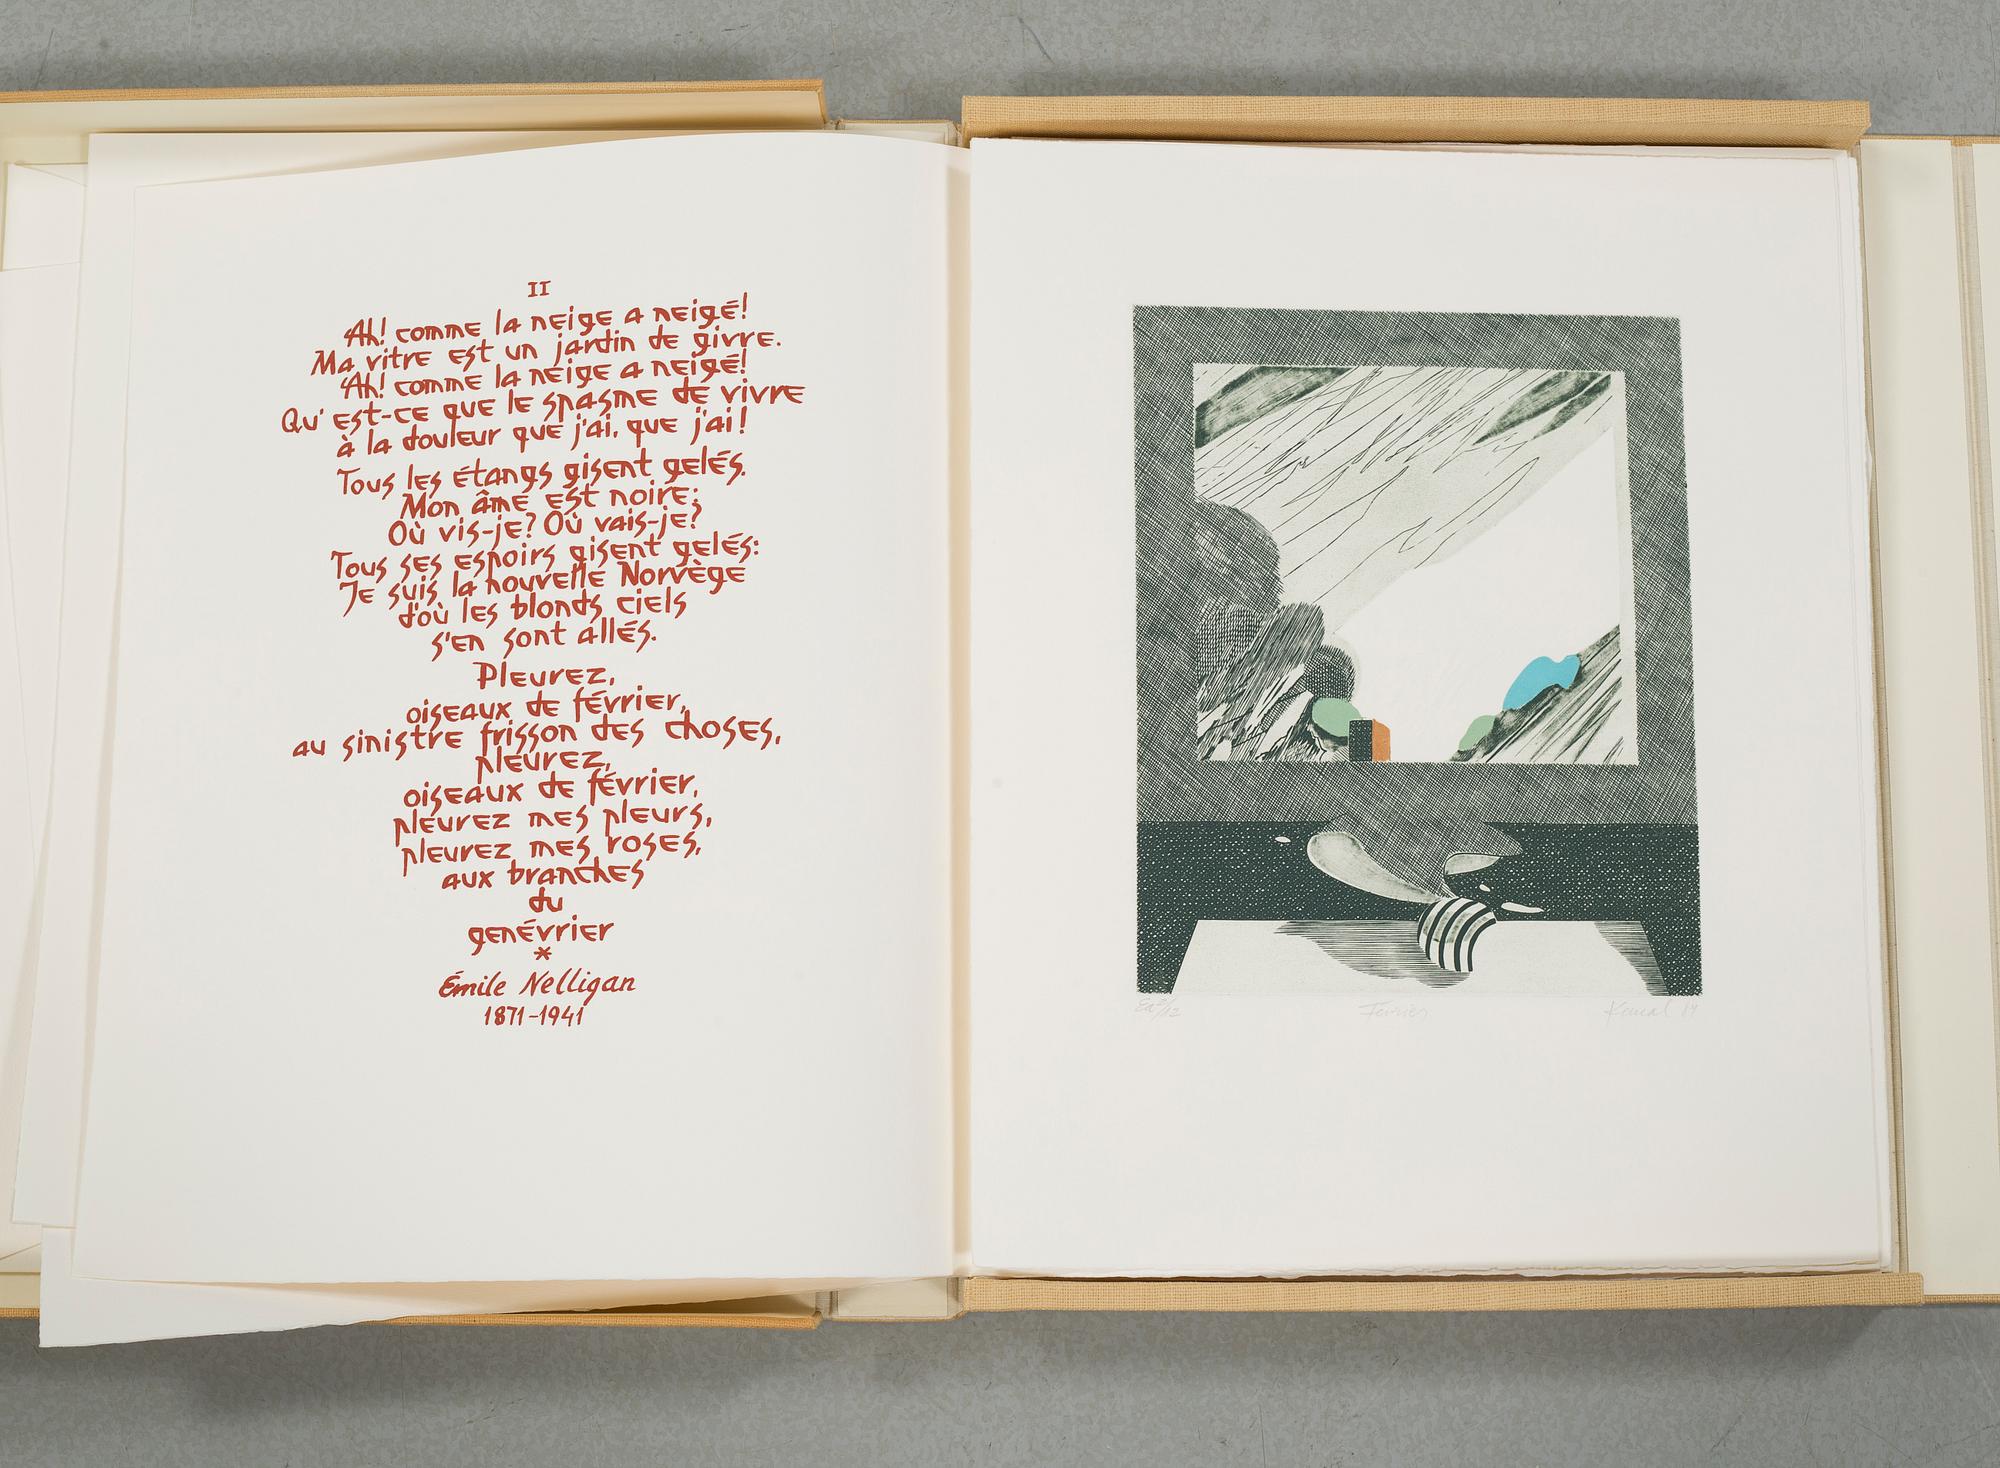 II
Ah! comme la neige a neigé!
Ma vitre est un jardin de givre.
Ah! comme la neige a neigé!
Qu'est-ce que le spasme de vivre
à la douleur que j'ai, que j'ai!
Tous les étangs gisent gelés.
Mon âme est noire;
Où vis-je? Où vais-je?
Tous ses espoirs gisent gelés:
Je suis la nouvelle Norvège
d'où les blonds ciels
s'en sont allés.
Pleurez,
oiseaux de février,
au sinistre frisson des choses,
pleurez,
oiseaux de février,
pleurez mes pleurs,
pleurez mes roses,
aux branches
du
genévrier
*
Émile Nelligan
1871-1941
Février